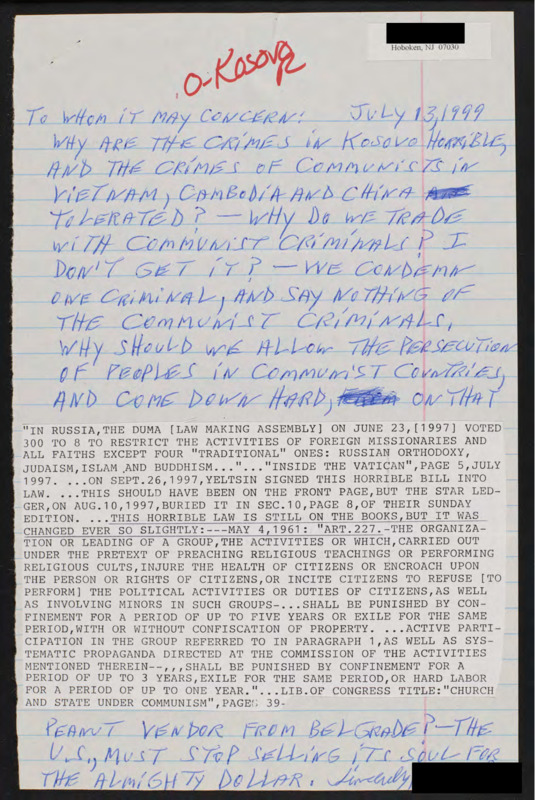 Hoboken, NJ 07030
O-Kosovo
TO WHOM IT MAY CONCERN: JULY 13, 1999
WHY ARE THE CRIMES IN KOSOVO HORRIBLE,
AND THE CRIMES OF COMMUNISTS IN
VIETNAM, CAMBODIA AND CHINA
TOLERATED? — WHY DO WE TRADE
WITH COMMUNIST CRIMINALS? I
DON'T GET IT? — WE CONDEMN
ONE CRIMINAL, AND SAY NOTHING OF
THE COMMUNIST CRIMINALS,
WHY SHOULD WE ALLOW THE PERSECUTION
OF PEOPLES IN COMMUNIST COUNTRIES,
AND COME DOWN HARD, ON THAT
"IN RUSSIA,THE DUMA [LAW MAKING ASSEMBLY] ON JUNE 23,[1997] VOTED
300 TO 8 TO RESTRICT THE ACTIVITIES OF FOREIGN MISSIONARIES AND
ALL FAITHS EXCEPT FOUR "TRADITIONAL" ONES: RUSSIAN ORTHODOXY,
JUDAISM,ISLAM AND BUDDHISM..."..."INSIDE THE VATICAN",PAGE 5,JULY
1997. ...ON SEPT.26,1997,YELTSIN SIGNED THIS HORRIBLE BILL INTO
LAW. ...THIS SHOULD HAVE BEEN ON THE FRONT PAGE,BUT THE STAR LED-
GER,ON AUG.10,1997,BURIED IT IN SEC.10,PAGE 8,OF THEIR SUNDAY
EDITION. ...THIS HORRIBLE LAW IS STILL ON THE BOOKS,BUT IT WAS
CHANGED EVER SO SLIGHTLY:---MAY 4,1961: "ART.227.-THE ORGANIZA-
TION OR LEADING OF A GROUP,THE ACTIVITIES OR WHICH,CARRIED OUT
UNDER THE PRETEXT OF PREACHING RELIGIOUS TEACHINGS OR PERFORMING
RELIGIOUS CULTS,INJURE THE HEALTH OF CITIZENS OR ENCROACH UPON
THE PERSON OR RIGHTS OF CITIZENS,OR INCITE CITIZENS TO REFUSE [TO
PERFORM] THE POLITICAL ACTIVITIES OR DUTIES OF CITIZENS,AS WELL
AS INVOLVING MINORS IN SUCH GROUPS-...SHALL BE PUNISHED BY CON-
FINEMENT FOR A PERIOD OF UP TO FIVE YEARS OR EXILE FOR THE SAME
PERIOD,WITH OR WITHOUT CONFISCATION OF PROPERTY. ...ACTIVE PARTI-
CIPATION IN THE GROUP REFERRED TO IN PARAGRAPH 1,AS WELL AS SYS-
TEMATIC PROPAGANDA DIRECTED AT THE COMMISSION OF THE ACTIVITIES
MENTIONED THEREIN--,,,SHALL BE PUNISHED BY CONFINEMENT FOR A
PERIOD OF UP TO 3 YEARS,EXILE FOR THE SAME PERIOD,OR HARD LABOR
FOR A PERIOD OF UP TO ONE YEAR."...LIB.OF CONGRESS TITLE:"CHURCH
AND STATE UNDER COMMUNISM",PAGES 39-
PEANUT VENDOR FROM BELGRADE? — THE
U.S., MUST STOP SELLING ITS SOUL FOR
THE ALMIGHTY DOLLAR. Sincerely